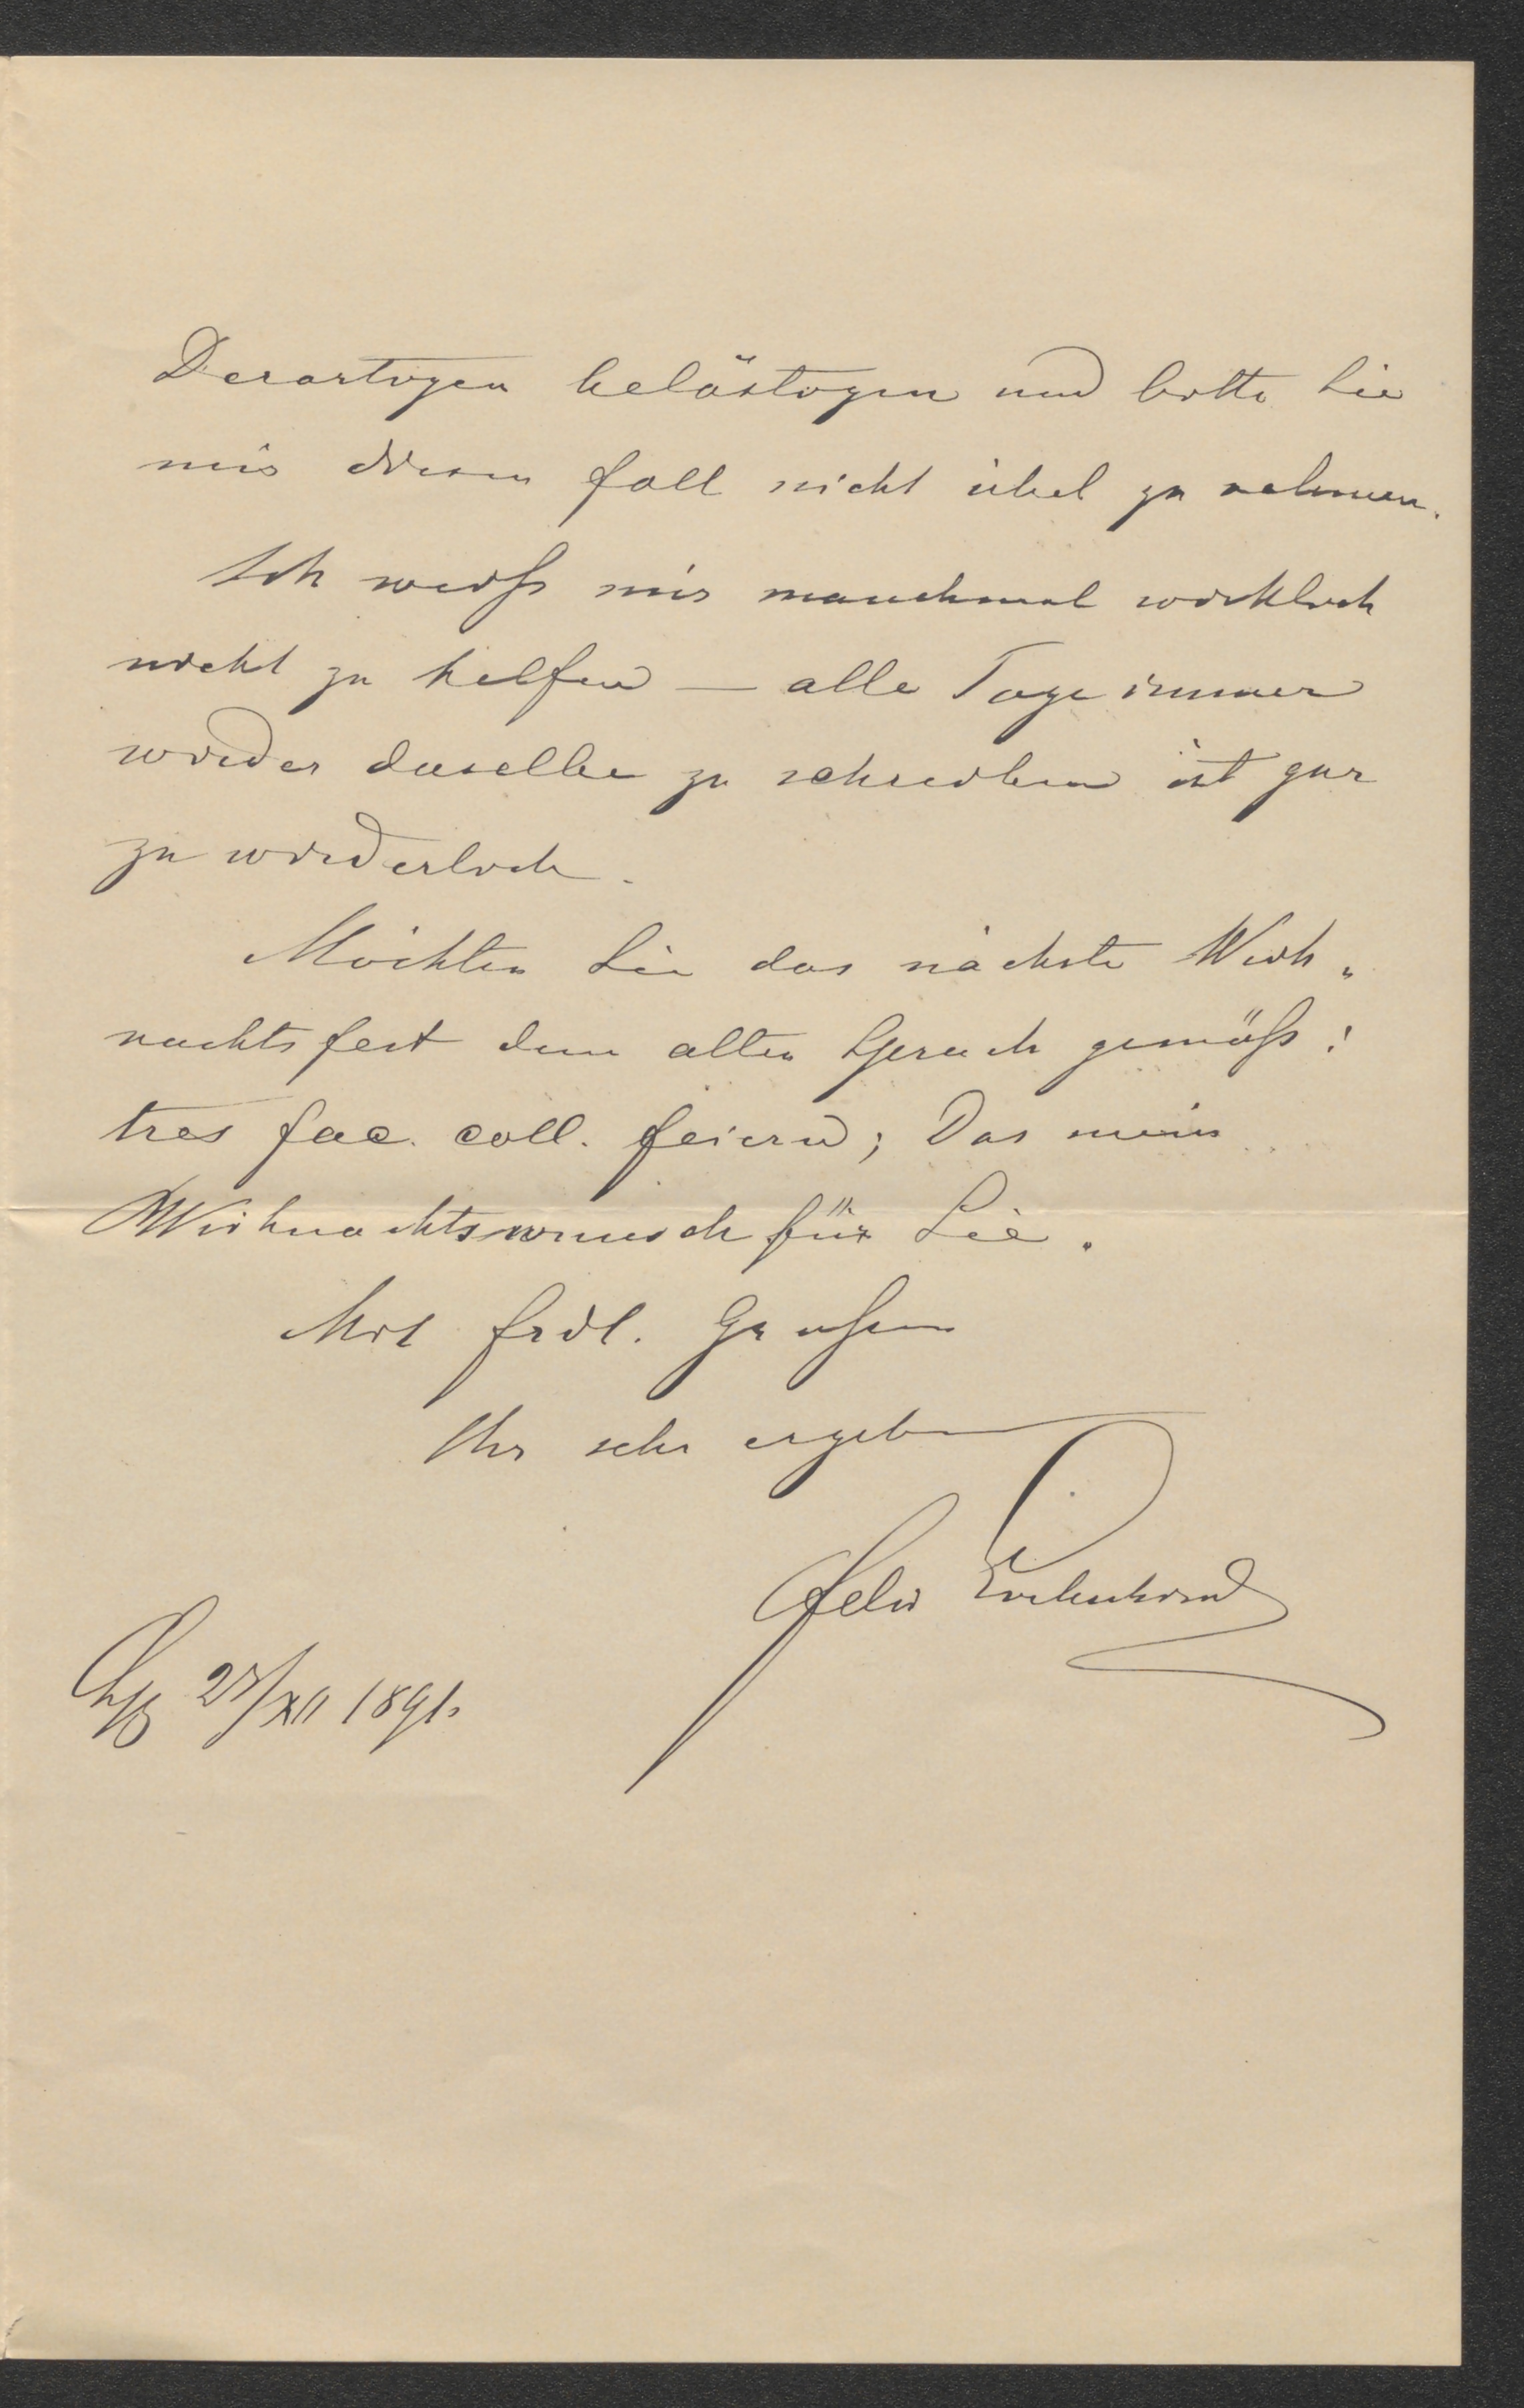 Derartigen belästigen und bitte Sie
mir diesen Fall nicht übel zu nehmen.
Ich weiß mir manchmal wirklich
nicht zu helfen — alle Tage immer
wieder dieselbe zu schreiben ist gar
zu widerlich.
Möchten Sie das nächste Weih„
nachtsfest dem alten Spruch gemäß:
tres fac. coll. feiern; Das mein
Weihnachtswunsch für Sie.
Mit frdl. Grußen
Ihr sehr ergeben
Felix
Lpz 23/XII 1891.